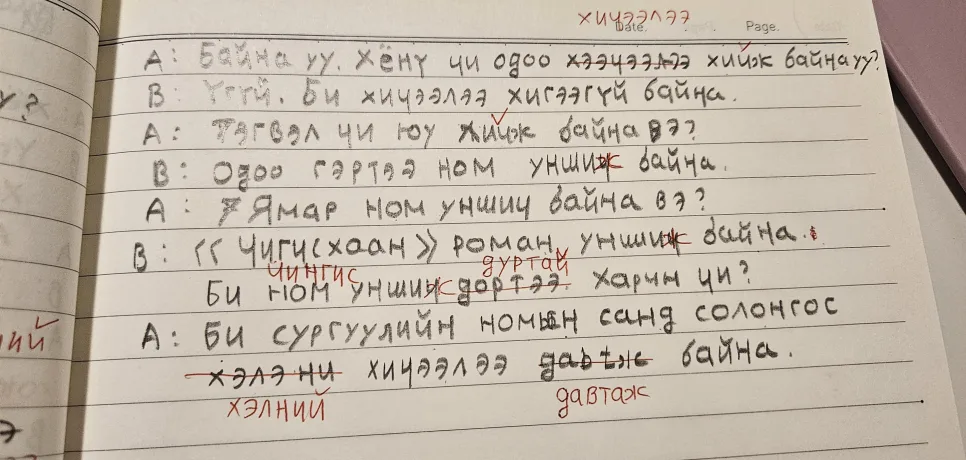 хичээлээ
Date. Page.
А: Байна уу. Хёнү чи одоо хээчээлээ хийж байна уу?
У?
В: Үгүй. Би хичээлээ хигээгүй байна.
А: Тэгвэл чи юу хийж байна вэ?
В: Одоо гэртээ ном уншиж байна.
А: Ямар ном уншич байна вэ?
В: << Чигисхаан >> роман уншиж байна.
чингис дуртай
Би ном уншиж дортээ. Харин чи?
ний
А: Би сургуулийн номын санд солонгос
хэлэ ни хичээлээ давtж байна.
хэлний давтаж
э